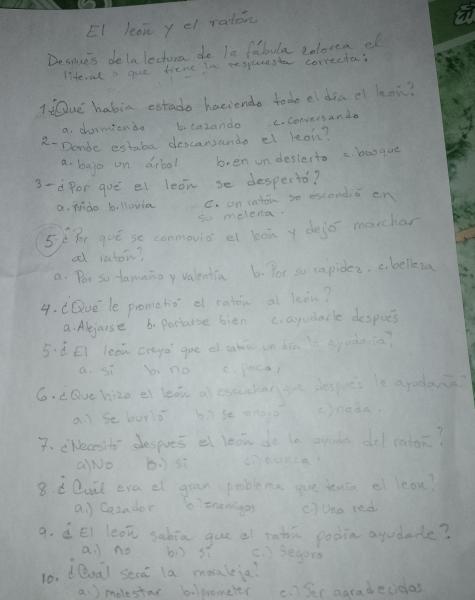 El león y el ratón
Después de la lectura de la fábula colorea el
literal o que tiene la respuesta correcta:
1-¿Qué había estado haciendo todo el día el león?
a. durmiendo b. cazando c. conversando
2-Donde estaba descansando el león?
a. bajo un árbol b. en un desierto c. bosque
3-¿Por qué el león se despertó?
a. ruido b. lluvia c. un ratón se escondió en
su melena.
5 ¿Por qué se conmovió el león y dejó marchar
al ratón?
a. Por su tamaño y valentía b. Por su rapidez. c. belleza
4. ¿Qué le prometió el ratón al león?
a. Alejarse b. portarse bien c. ayudarle después
5. ¿El león creyó que el ratón un día le ayudaría?
a. sí b. no c. poco
6. ¿Que hizo el león al escuchar que después le ayudaría?
a.) Se burló b.) se enojó c.) nada.
7. ¿Necesitó después el león de la ayuda del ratón?
a) No b.) Sí c.) nunca.
8 ¿Cuál era el gran problema que tenía el león?
a.) Cazador b.) enemigos c.) Una red
9. ¿El león sabía que el ratón podía ayudarle?
a.) no b.) sí c.) Seguro
10. ¿Cuál será la moraleja?
a.) molestar b.) prometer c.) Ser agradecidos